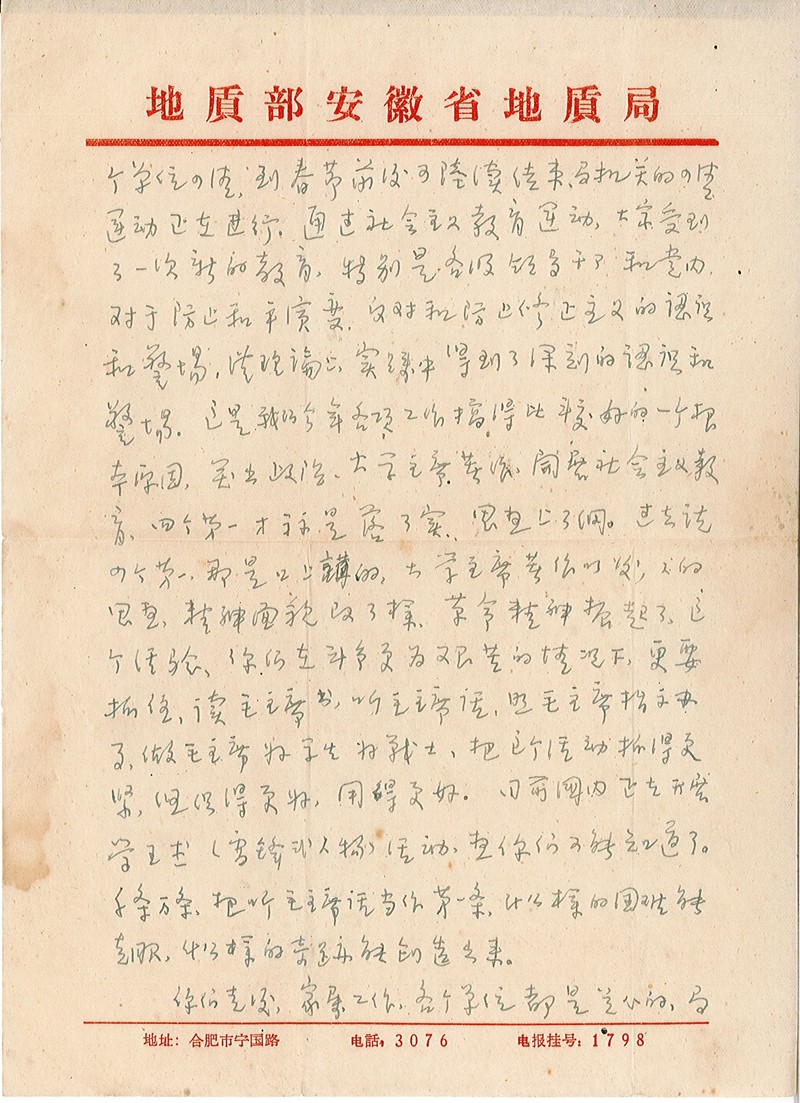 地质部安徽省地质局
个单位四清,到春节前后可陆续结束,局机关的四清
运动正在进行。通过社会主义教育运动,大家受到
了一次新的教育,特别是各级领导干部和党内,
对于防止和平演变,反对和防止修正主义的认识
和警惕,从理论上、实践中得到了深刻的认识和
警惕。这是我们今年各项工作搞得比较好的一个根
本原因,突出政治、大学主席著作、开展社会主义教
育,四个第一才算是落了实,思想上了纲。过去说
四个第一,那是口上講的,大学主席著作以后,人的
思想、精神面貌改了樣,革命精神振起了,这
个经验、你们在斗争更为艰苦的情况下,更要
抓住,读毛主席书,听毛主席话,照毛主席指示办
事,做毛主席好学生好战士、把这个活动抓得更
紧,组织得更好,用得更好。目前國内正在开展
学王杰(雷锋式人物)活动、想你们可能知道了。
千条万条、把听毛主席话当作第一条,什么樣的困难能
克服,什么樣的奇迹亦能创造出来。
你们走后,家里工作,各个单位都是关心的,局
地址:合肥市宁国路 电話:3076 电报挂号:1798